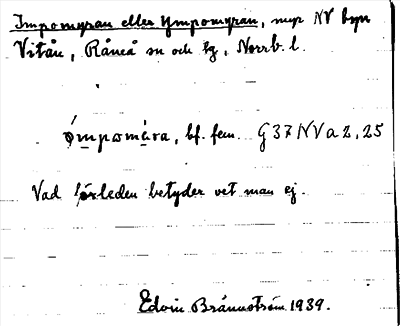 Impomyran eller Ympomyran, myr NV byn
Vitån, Råneå sn och tg, Norrb. l.
ómpomỳra, bf. fem. G37NVa2,25
Vad förleden betyder vet man ej.
Edvin Brännström 1939.